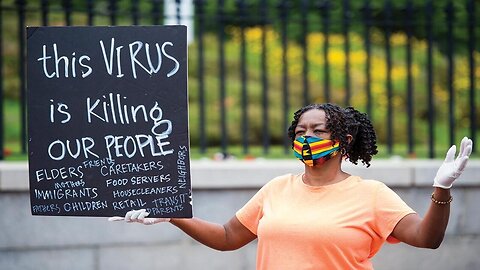 this VIRUS
is Killing
OUR PEOPLE
ELDERS FRIENDS CARETAKERS NEIGHBORS
MOTHERS FOOD SERVERS
IMMIGRANTS HOUSECLEANERS
FATHERS CHILDREN RETAIL TRANSIT
PARENTS